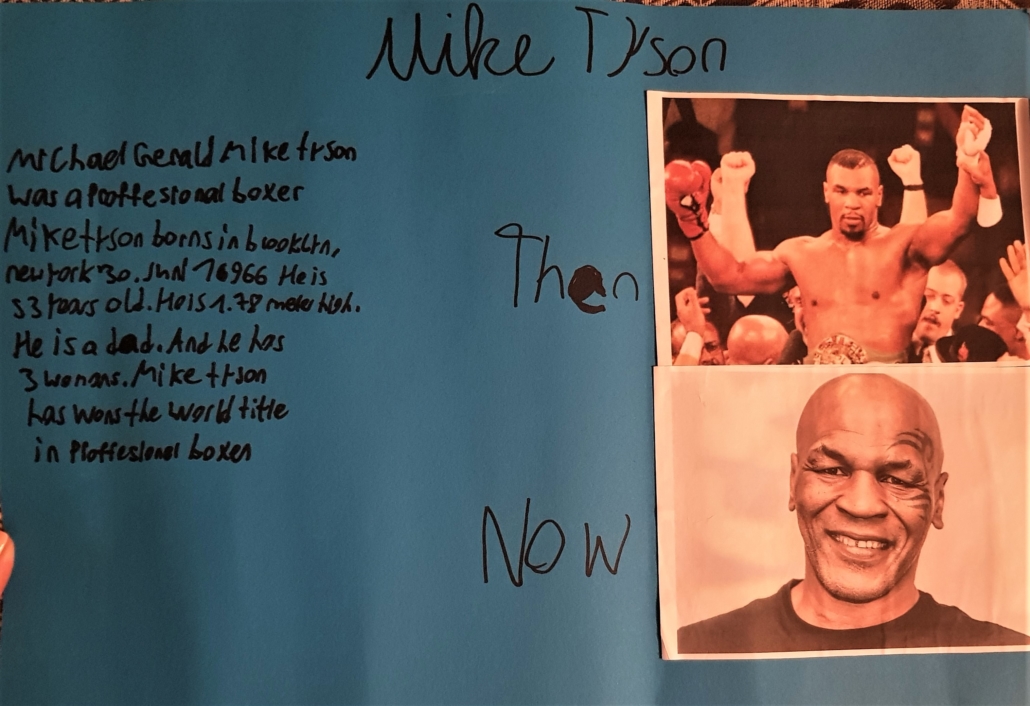 Mike Tyson
Michael Gerald Mike tyson
was a Proffesional boxer
Mike tyson borns in brooklyn,
new york 30. JuN 16966 He is
53 years old. He is 1.78 meter high.
He is a dad. And he has
3 womans. Mike tyson
has wons the world title
in Proffesional boxer
Then
Now